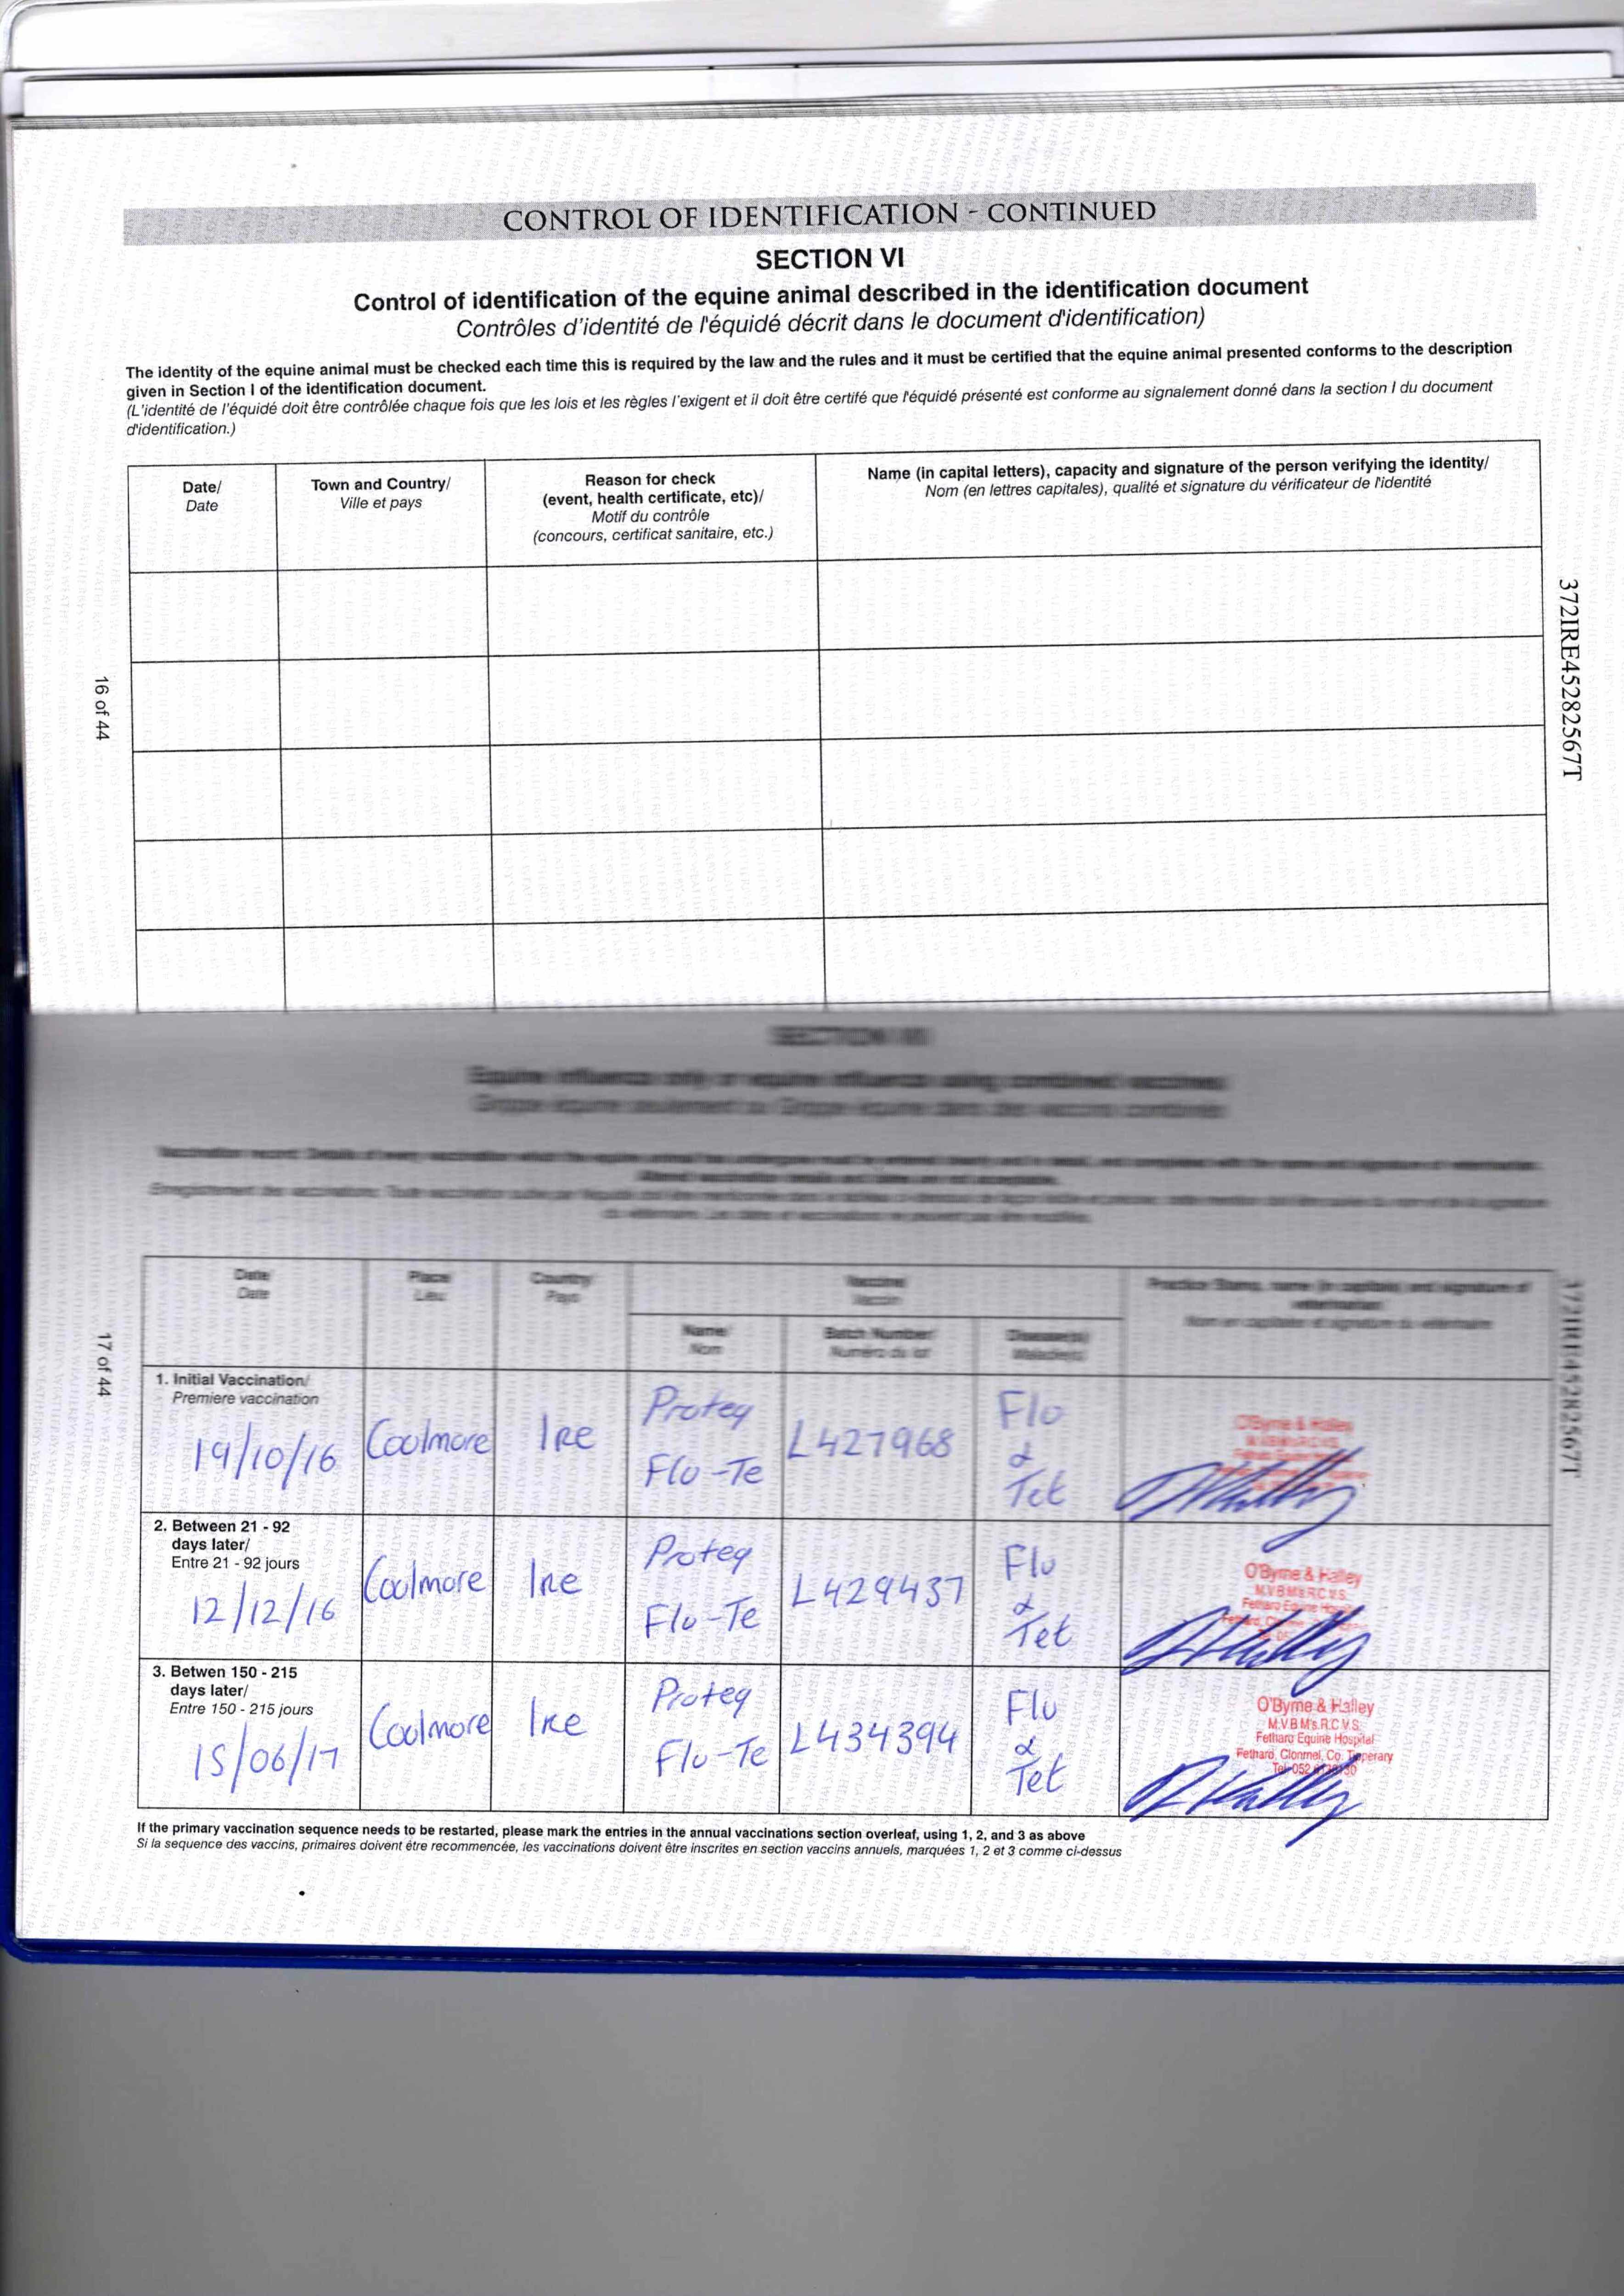 CONTROL OF IDENTIFICATION - CONTINUED
SECTION VI
Control of identification of the equine animal described in the identification document
Contrôles d'identité de l'équidé décrit dans le document d'identification)
The identity of the equine animal must be checked each time this is required by the law and the rules and it must be certified that the equine animal presented conforms to the description
given in Section I of the identification document.
(L'identité de l'équidé doit être contrôlée chaque fois que les lois et les règles l'exigent et il doit être certifé que l'équidé présenté est conforme au signalement donné dans la section I du document
d'identification.)
Date/
Date
Town and Country/
Ville et pays
Reason for check
(event, health certificate, etc)/
Motif du contrôle
(concours, certificat sanitaire, etc.)
Name (in capital letters), capacity and signature of the person verifying the identity/
Nom (en lettres capitales), qualité et signature du vérificateur de l'identité
16 of 44
372IRE45282567T
SECTION
Equine influenza only or equine influenza using combined vaccines
Grippe équine seulement ou Grippe équine dans des vaccins combinés
Date
Date
Place
Lieu
Country
Pays
Vaccine
Vaccin
Name
Nom
Batch Number
Numéro du lot
Disease(s)
Maladie(s)
Practice Stamp, name (in capitals) and signature of
veterinarian
Nom en capitales et signature du vétérinaire
17 of 44
372IRE45282567T
1. Initial Vaccination/
Premiere vaccination
19/10/16
Coolmore
Ire
Proteq
Flu-Te
L427968
Flu
&
Tet
O'Byrne & Halley
2. Between 21 - 92
days later/
Entre 21 - 92 jours
12/12/16
Coolmore
Ire
Proteq
Flu-Te
L429437
Flu
&
Tet
O'Byrne & Halley
M.V.B M's R.C.V.S.
Fethard Equine Hospital
3. Betwen 150 - 215
days later/
Entre 150 - 215 jours
15/06/17
Coolmore
Ire
Proteq
Flu-Te
L434394
Flu
&
Tet
O'Byrne & Halley
M.V.B M's. R.C.V.S.
Fethard Equine Hospital
Fethard, Clonmel, Co. Tipperary
If the primary vaccination sequence needs to be restarted, please mark the entries in the annual vaccinations section overleaf, using 1, 2, and 3 as above
Si la sequence des vaccins, primaires doivent être recommencée, les vaccinations doivent être inscrites en section vaccins annuels, marquées 1, 2 et 3 comme ci-dessus